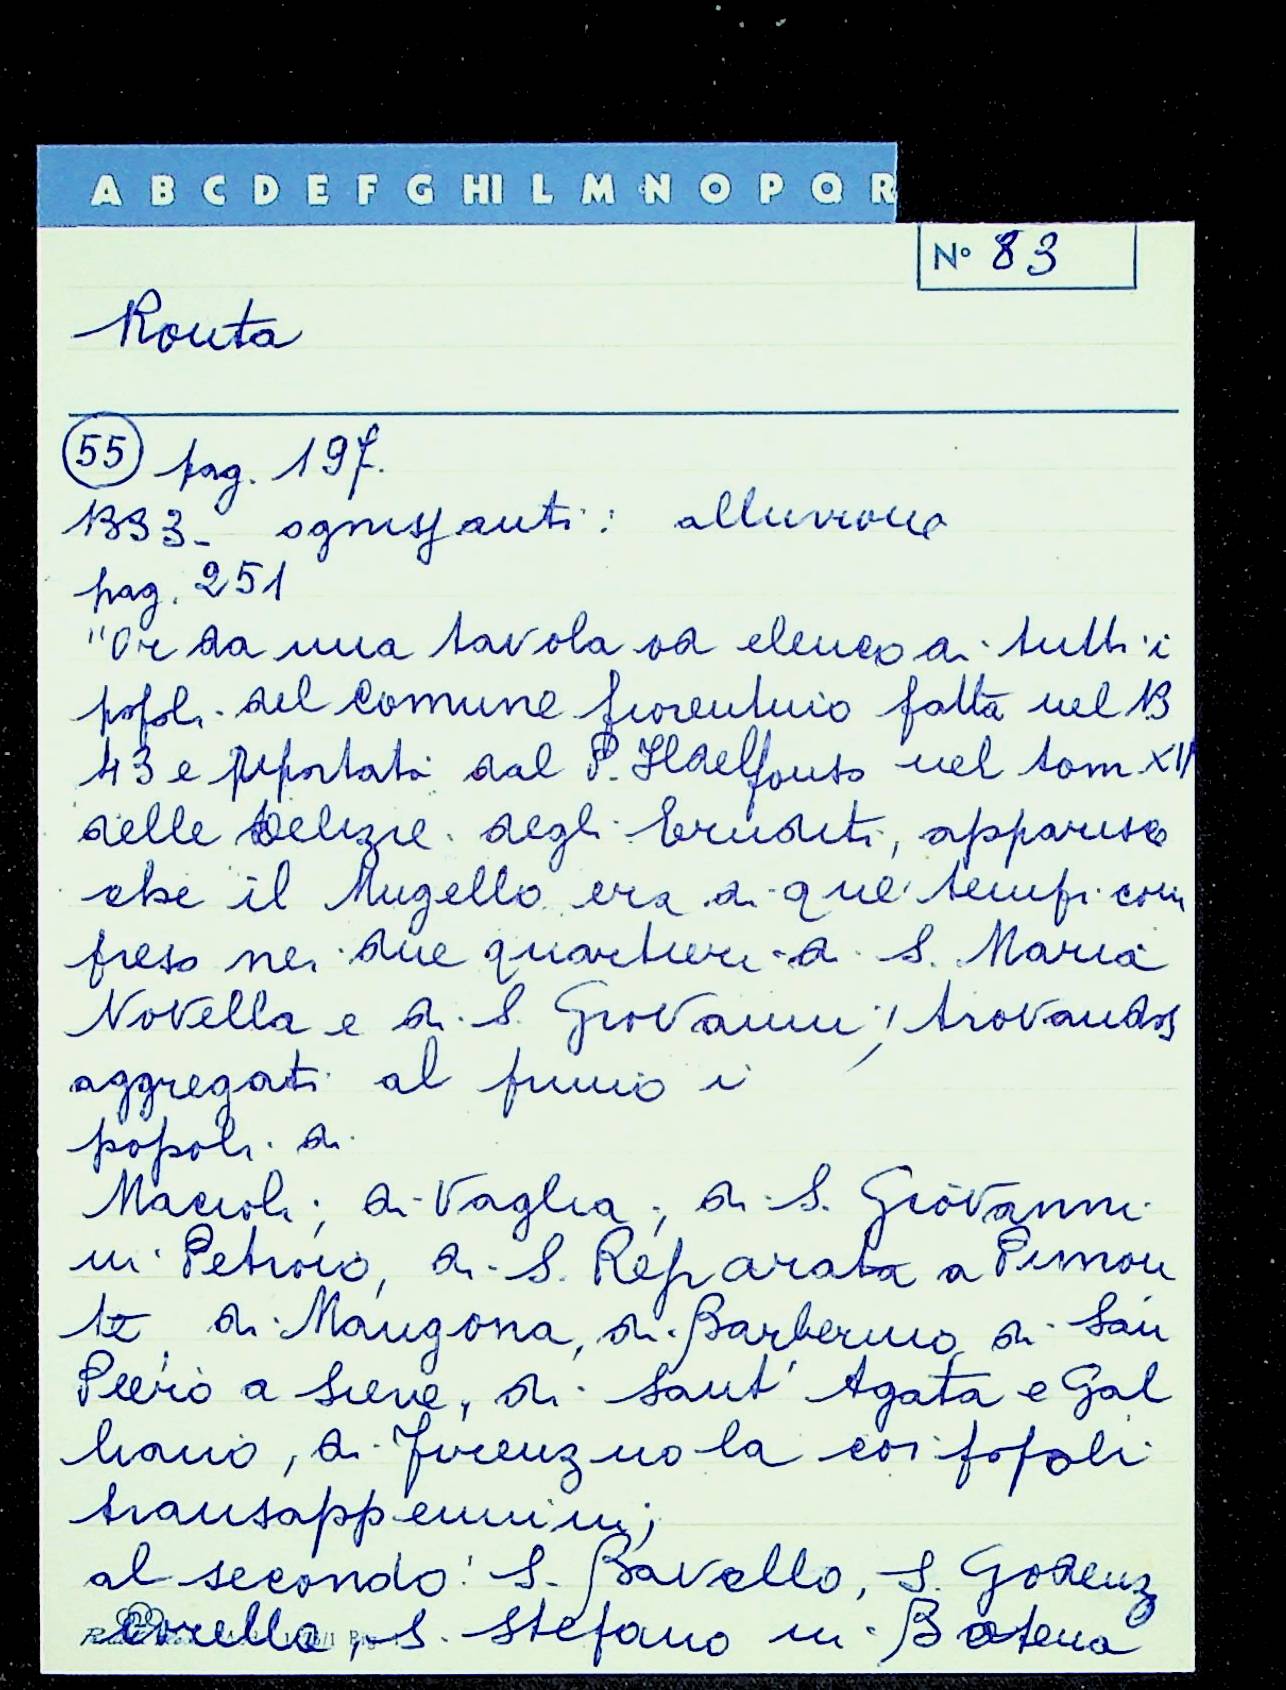 A B C D E F G HI L M N O P Q R
N° 83
Ronta
55 pag. 197.
1333- ognissanti: alluvione
pag. 251
"Or da una tavola od elenco di tutti i
popoli del Comune fiorentino fatta nel 13
43 e riportata dal P. Ildelfonso nel tom. XII
delle Delizie degli Eruditi, apparisce
che il Mugello era di que' tempi com
preso nei due quartieri di S. Maria
Novella e di S. Giovanni; trovandosi
aggregati al primo i
popoli di
Macioli, di Vaglia, di S. Giovanni
in Petroio, di S. Reparata a Pimon
te, di Mangona, di Barberino, di San
Piero a Sieve, di Sant' Agata e Gal
liano, di Firenzuola coi popoli
transappennini;
al secondo: S. Bavello, S. Godenz
Corella, S. Stefano in Botena